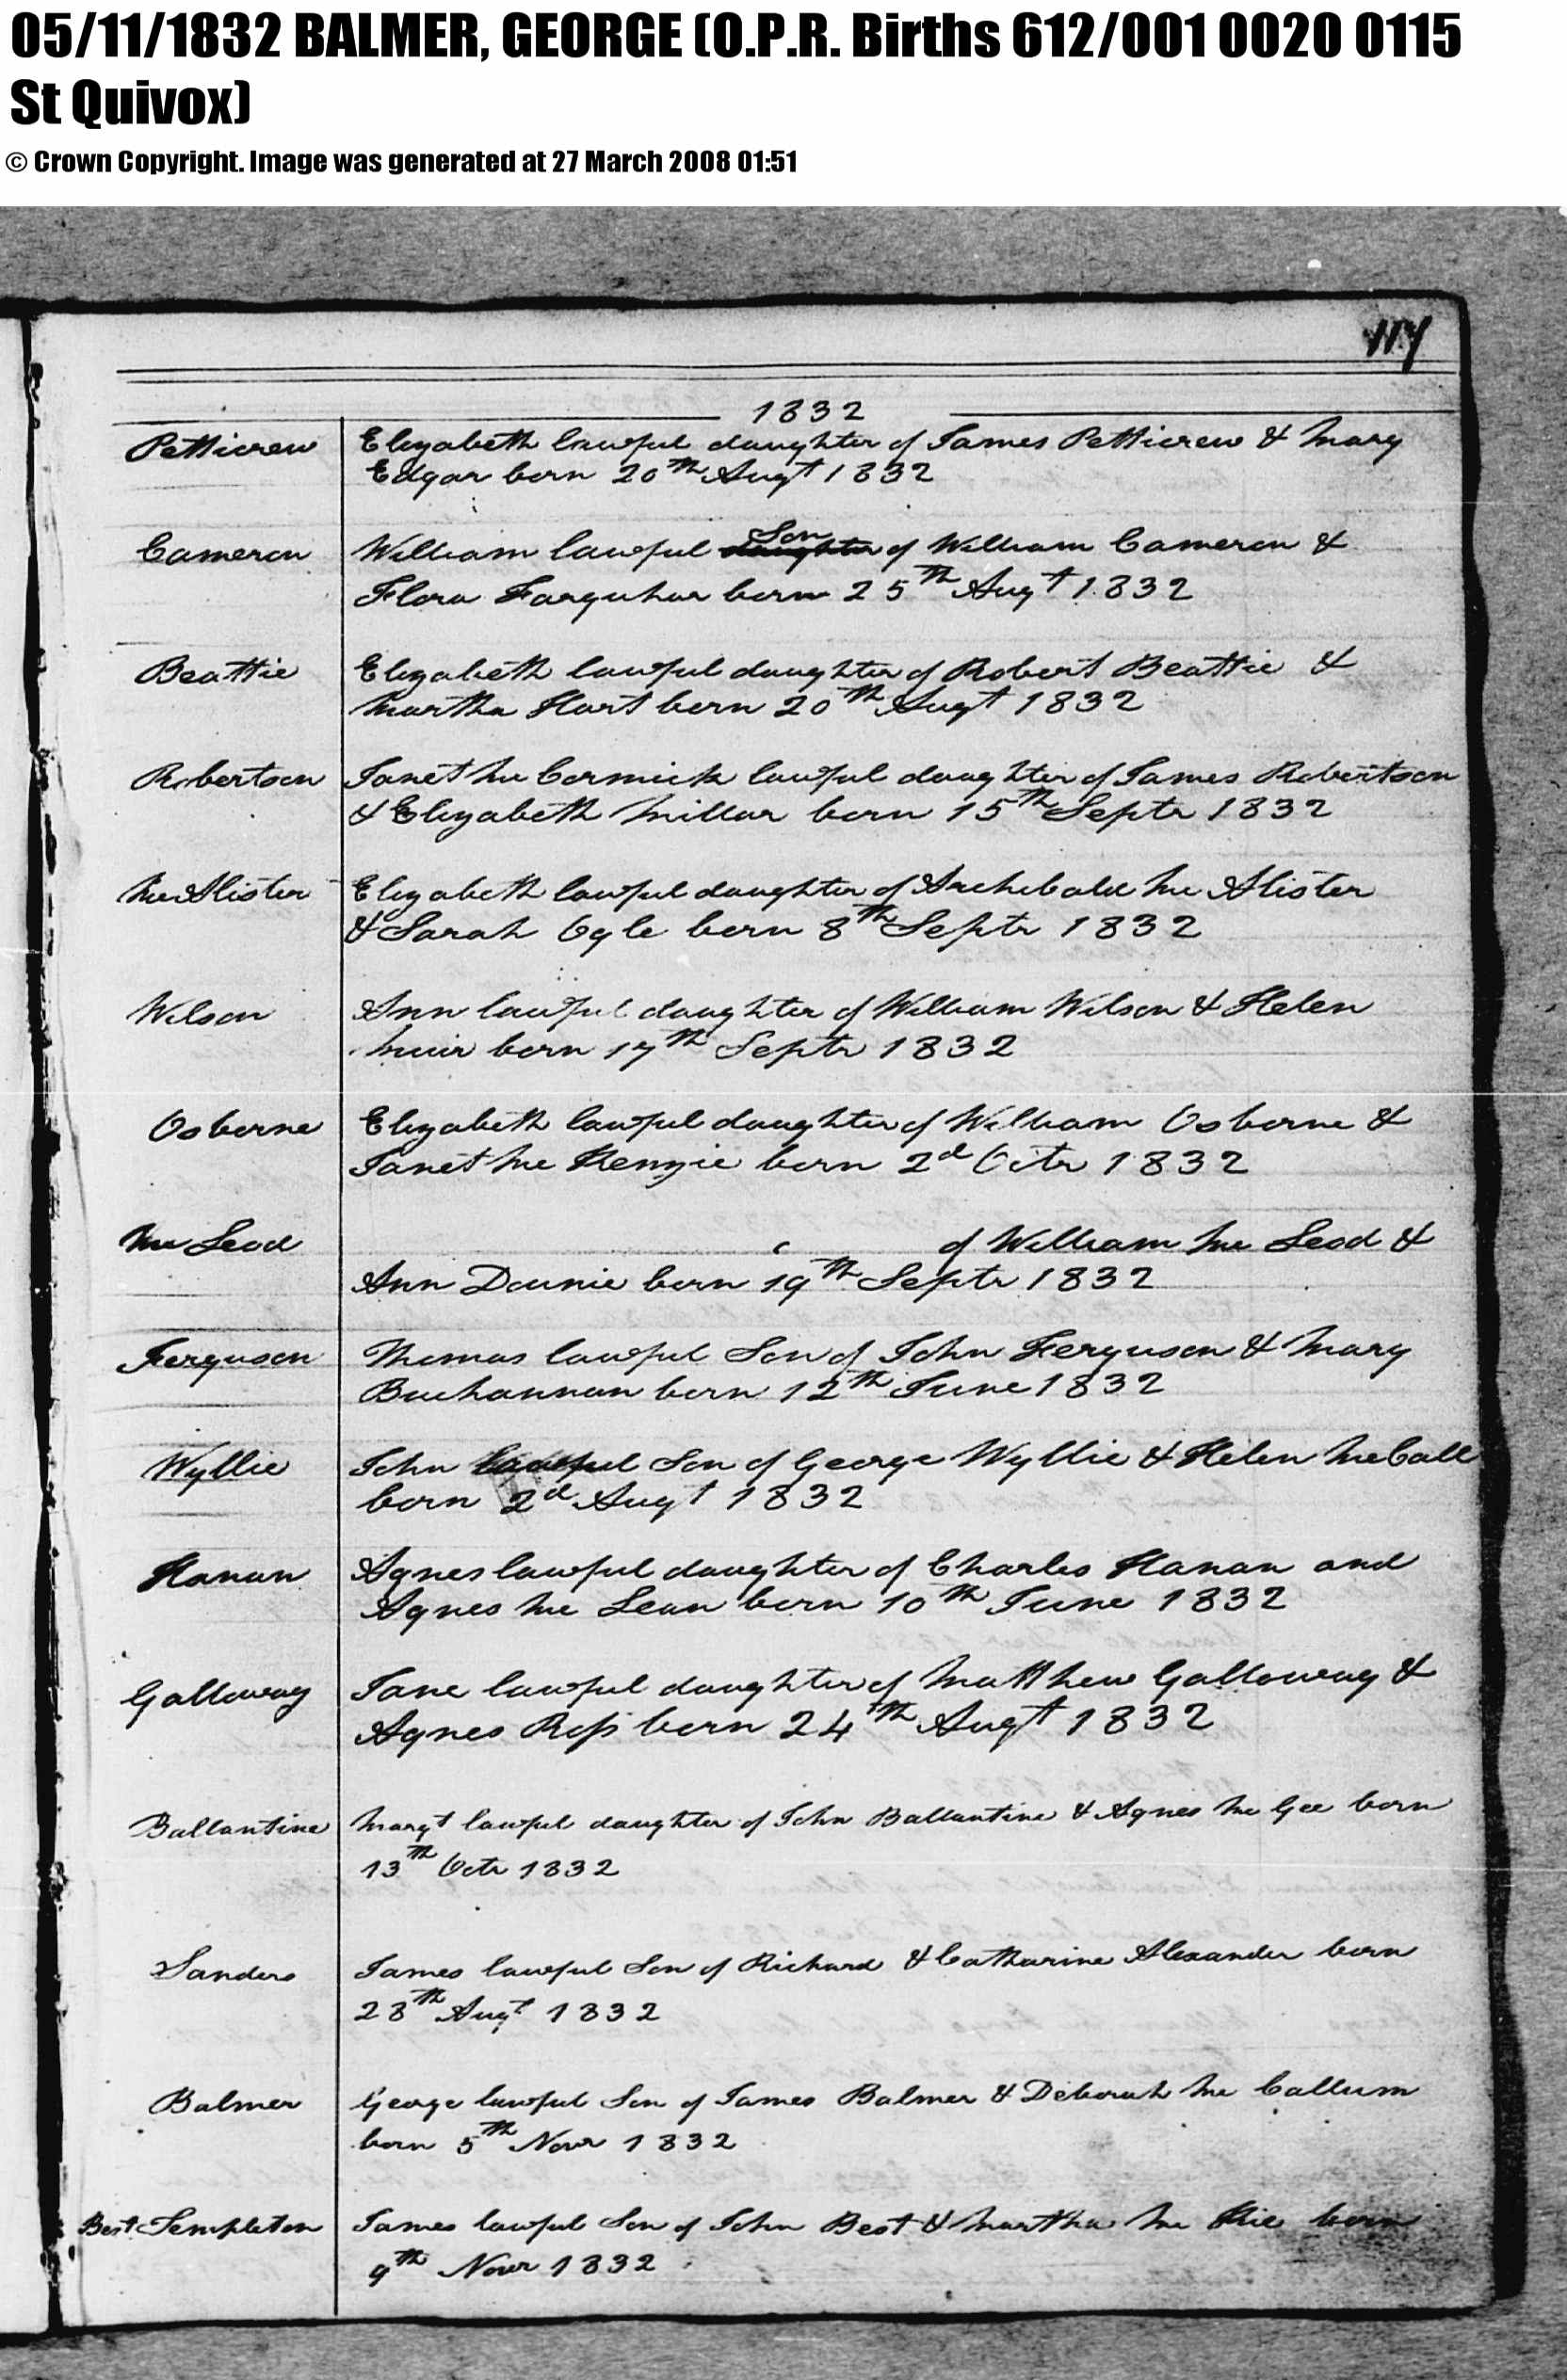 05/11/1832 BALMER, GEORGE (O.P.R. Births 612/001 0020 0115
St Quivox)
© Crown Copyright. Image was generated at 27 March 2008 01:51
1832
Petticrew Elizabeth lawful daughter of James Petticrew & Mary
Edgar born 20th Augt 1832
Cameron William lawful daughter Son of William Cameron &
Flora Farquhar born 25th Augt 1832
Beattie Elizabeth lawful daughter of Robert Beattie &
Martha Hart born 20th Augt 1832
Robertson Janet Mc Cormick lawful daughter of James Robertson
& Elizabeth Millar born 15th Septr 1832
McAlister Elizabeth lawful daughter of Archibald Mc Alister
& Sarah Ogle born 8th Septr 1832
Wilson Ann lawful daughter of William Wilson & Helen
Muir born 17th Septr 1832
Osborne Elizabeth lawful daughter of William Osborne &
Janet Mc Kenzie born 2d Octr 1832
Mc Leod of William Mc Leod &
Ann Dounie born 19th Septr 1832
Ferguson Thomas lawful Son of John Ferguson & Mary
Buchannan born 12th June 1832
Wyllie John lawful Son of George Wyllie & Helen McCall
born 2d Augt 1832
Hanan Agnes lawful daughter of Charles Hanan and
Agnes Mc Lean born 10th June 1832
Galloway Jane lawful daughter of Matthew Galloway &
Agnes Ross born 24th Augt 1832
Ballantine Margt lawful daughter of John Ballantine & Agnes Mc Gee born
13th Octr 1832
Sanders James lawful Son of Richard & Catharine Alexander born
28th Augt 1832
Balmer George lawful Son of James Balmer & Deborah Mc Callum
born 5th Novr 1832
Best Templeton James lawful Son of John Best & Martha Mc Kie born
9th Novr 1832